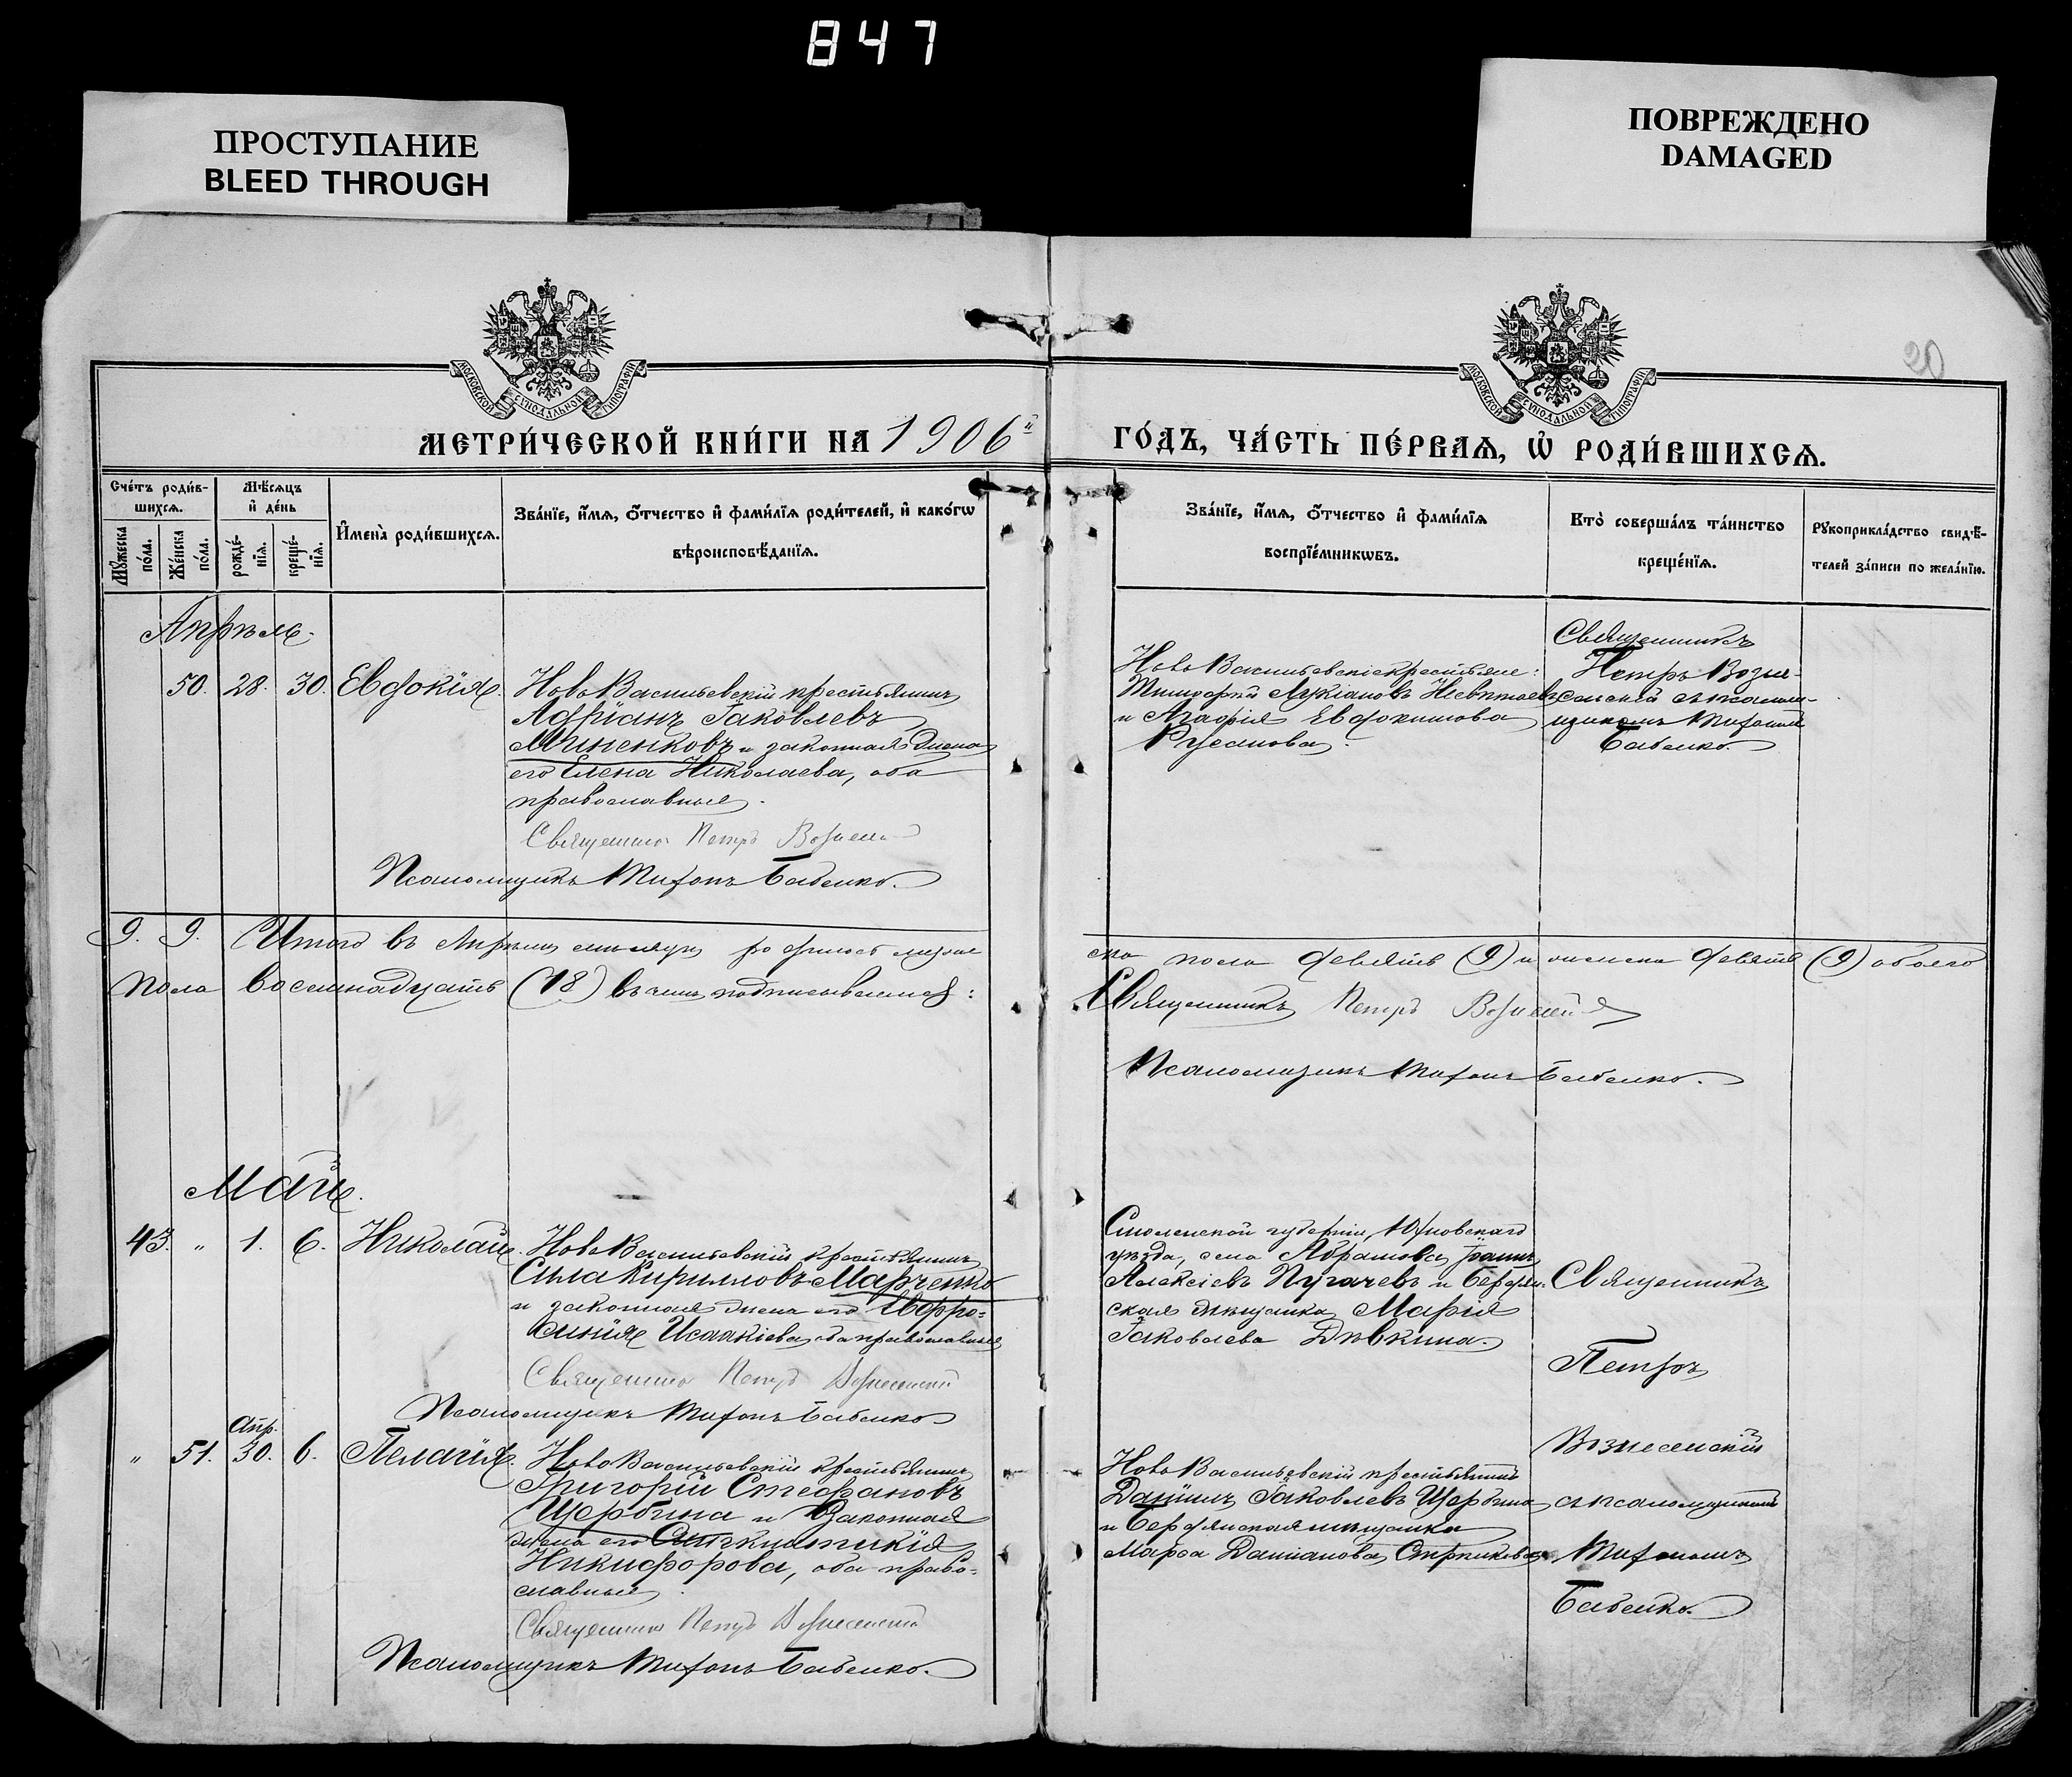 847
ПРОСТУПАНИЕ
BLEED THROUGH
ПОВРЕЖДЕНО
DAMAGED
МОСКОВСКОЙ СѴНОДАЛЬНОЙ ТИПОГРАФІИ
МОСКОВСКОЙ СѴНОДАЛЬНОЙ ТИПОГРАФІИ
20
МЕТРИ́ЧЕСКОЙ КНИ́ГИ НА 1906й
ГО́ДЪ, ЧА́СТЬ ПЕ́РВАЯ, Ѡ҆ РОДИ́ВШИХСЯ.
Сче́тъ роди́в-
шихся.
Мѣ́сяцъ
и҆ де́нь
Му́жеска
по́ла.
Же́нска
по́ла.
рожде́-
нїя.
креще́-
нїя.
И҆мена̀ роди́вшихся.
Зва́нїе, и҆́мя, ѻ҆́тчество и҆ фами́лїя роди́телей, и҆ како́гѡ
вѣроисповѣ́данїя.
Зва́нїе, и҆́мя, ѻ҆́тчество и҆ фами́лїя
воспрїе́мникѡвъ.
Кто̀ соверша́лъ та́инство
креще́нїя.
Рукоприкла́дство свидѣ́-
телей за́писи по жела́нїю.
Апрѣль.
50. 28. 30. Евдокія.
НовоВасильевскій крестьянинъ
Адріанъ Іаковлевъ
Миненковъ и законная жена
его Елена Николаева, оба
православные.
Священникъ Петръ Вознесенскій
Псаломщикъ Тихонъ Бабенко.
НовоВасильевскіе крестьяне:
Тимофей Лукіановъ
и Агафія Евдокимова
Русанова.
Священникъ
Петръ Возне-
сенскій съ псалом-
щикомъ Тихономъ
Бабенко.
9. 9. Итого въ Апрѣлѣ мѣсяцѣ родилось муже
ска пола девять (9) и женска девять (9) обоего
пола восемнадцать (18) въ чемъ подписываемся:
Священникъ Петръ Вознесенскій
Псаломщикъ Тихонъ Бабенко.
Май.
43. „ 1. 6. Николай.
НовоВасильевскій крестьянинъ
Сила Кирилловъ Марченко
и законная жена его Евфро=
синія Исаакіева, оба православные
Священникъ Петръ Вознесенскій
Псаломщикъ Тихонъ Бабенко
Смоленской губерніи, Юхновскаго
уѣзда, села Абрамова, Іоаннъ
Алексіевъ Пугачевъ и Бердян-
ская мѣщанка Марія
Іаковлева Дѣвкина.
Апр.
„ 51. 30. 6. Пелагія.
НовоВасильевскій крестьянинъ
Григорій Стефановъ
Щербина и законная
жена его Синклитикія
Никифорова, оба право-
славные.
Священникъ Петръ Вознесенскій
Псаломщикъ Тихонъ Бабенко.
НовоВасильевскій крестьянинъ
Даніилъ Іаковлевъ Щербина
и Бердянская мѣщанка
Марфа Даміанова
Священникъ
Петръ
Вознесенскій
съ псаломщикомъ
Тихономъ
Бабенко.